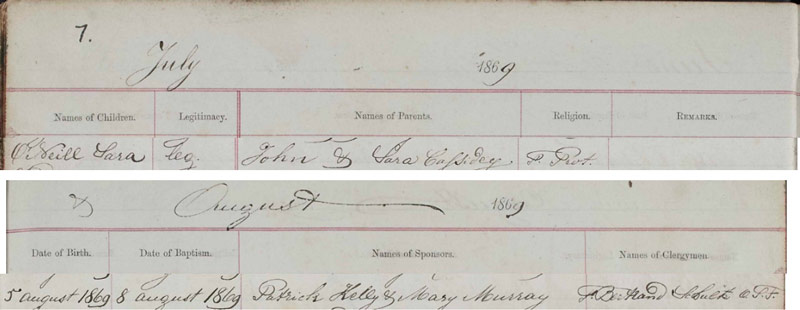 7.
July 1869
Names of Children. Legitimacy. Names of Parents. Religion. REMARKS.
O'Neill Sara leg. John & Sara Cassidey F. Prot.
& August 1869
Date of Birth. Date of Baptism. Names of Sponsors. Names of Clergymen.
5 august 1869 8 august 1869 Patrick Kelly & Mary Murray F. Bertrand